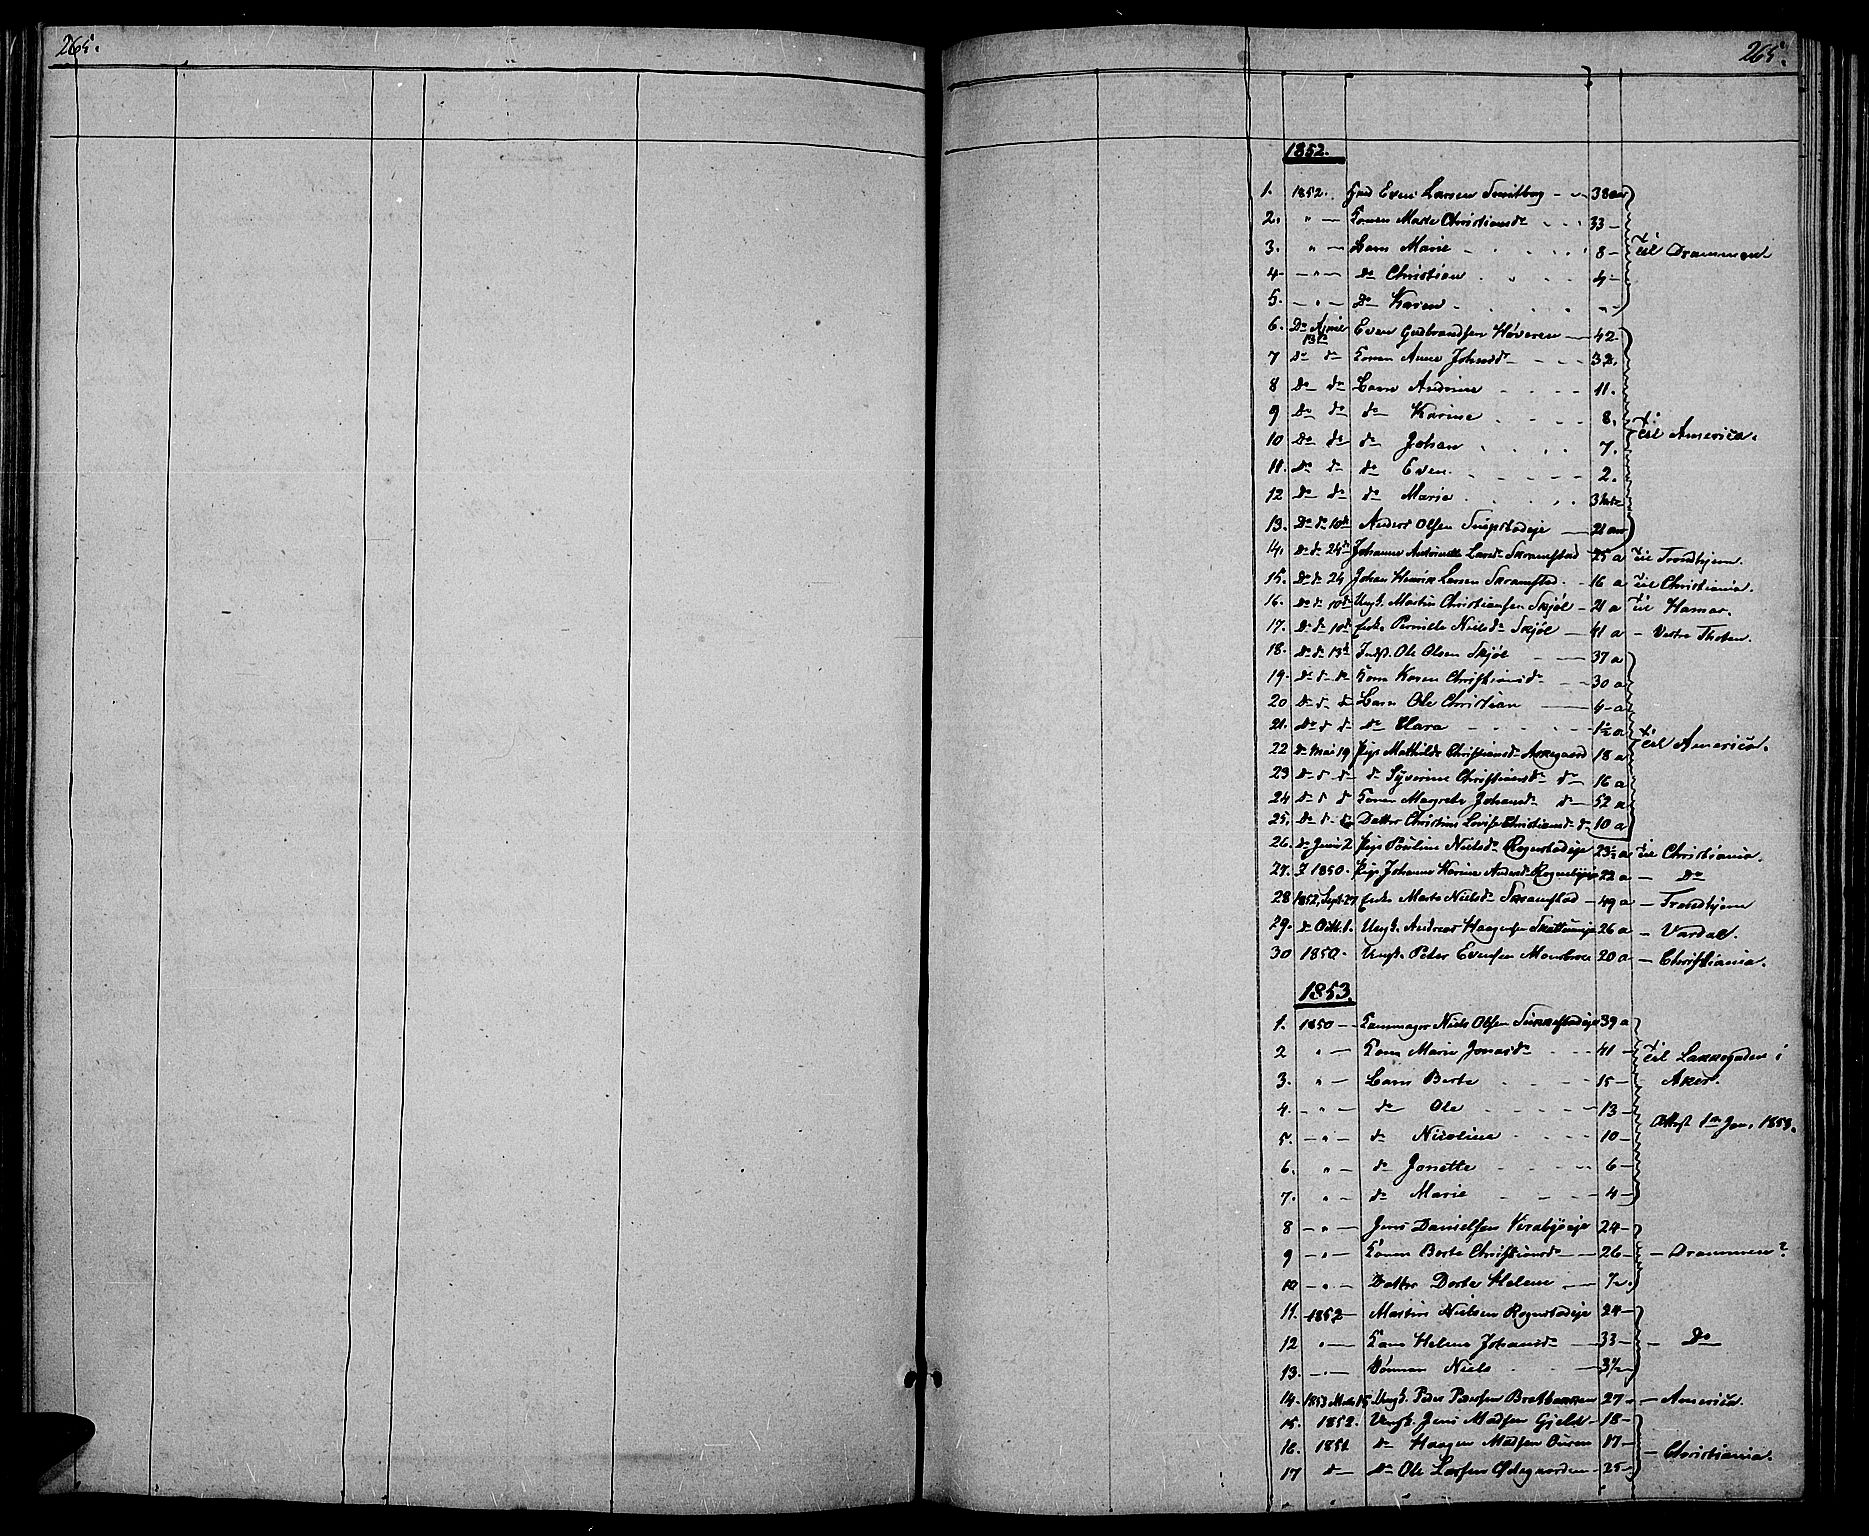 265.
265.
1852.
1. 1852. Even Larsen 38 aar
2. " — Konen Marte Christiansd 33 —
3. " — Barn Marie 8 — Til Drammen
4 — " — Do Christian 4 —
5. — " — Do Karen
6. Do April 13de Even Gudbrandsen Høveren — 42
7 Do do Konen Anne Johnsd 32.
8 Do do Barn Andrine 11.
9 Do do do Karine 8. Til America.
10 Do do do Johan 7.
11. Do do do Even 2.
12 Do do do Marie 3
13. Do do 10de Anders Olsen 21 aar
14. Do do 24de Johanne Antoinette Larsd Skramstad 25 a Til Trondhjem.
15. Do do 24 Johan Henrik Larsen Skramstad 16 a Til Christiania.
16. Do do 10de Ungk. Martin Christiansen Skjøl — 21 a Til Hamar.
17. Do do 10de Enke Pernille Nielsd Skjøl — 41 a — Vestre Thoten.
18. Do do 13de Indst. Ole Olsen Skjøl 37 a
19. Do do do Kone Karen Christiansd 30 a
20 Do do do Barn Ole Christian 4 — a
21. Do do do do Clara 1½ a Til America.
22 Do Mai 19 Pige Mathilde Christiansd 18 a
23 Do do do do Syverine Christiansd do 16 a
24 Do do do Konen Margrete Johansd do 52 a
25. Do do do Datter Christine Lovise Christiansd do 10 a
26. Do Juni 2 Pige Pauline Nielsd Rognstadeje 23½ a Til Christiania.
27. 1850. Pige Johanne Karine Andersd 22 a — Do
28 1852, Sept. 27 Enke Marte Nielsd Skramstad — 49 a — Trondhjem
29. Do Octb. 1. Ungk. Andreas Haagensen 26 a — Vardal.
30 1850. Ungk. Peter Evensen 20 a — Christiania.
1853.
1. 1850 — Niels Olsen 39 a
2 " — Kone Marie Jonasd 41 — Til Lakkegaden i
3. " — Barn Berte 15 — Aker.
4. — " — do Ole 13 —
Attest 1ste Jan. 1853.
5. — " — do Nicoline 10 —
6. " — do Jonette 6 —
7. " — do Marie 4 —
8 — " — Jens Danielsen 24 —
9 — " — Konen Berte Christiansd 26 — — Drammen?
10 — " — Datter Dorte Helene
11. 1852 — Martin Nielsen Rognstadeje 24 —
12 " — Kone Helene Johansd 33 — — Do
13. — " — Sønnen Niels 3½
14. 1853 Ungk. Peder 27 — — America.
15. 1852. Ungk. Jens Madsen Gjeld 18 —
16. 1851 do Haagen Madsen 17 — — Christiania.
17 do do Ole Larsen Ødegaarden 25 —